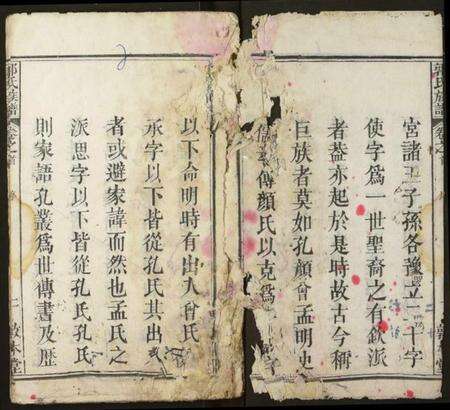 郭氏族譜
卷之首
宮諸王子孫各豫立二十字
使字爲一世聖裔之有欽派
者葢亦起於是時故古今稱
巨族者莫如孔顏曾孟明史
傳顏氏以克爲
字
以下命明時有出入曾氏
承字以下皆從孔氏其出或
者或避家諱而然也孟氏之
派思字以下皆從孔氏孔氏
則家語孔叢爲世傳書及歴
郭氏族譜
卷之首
序
二
敦本堂